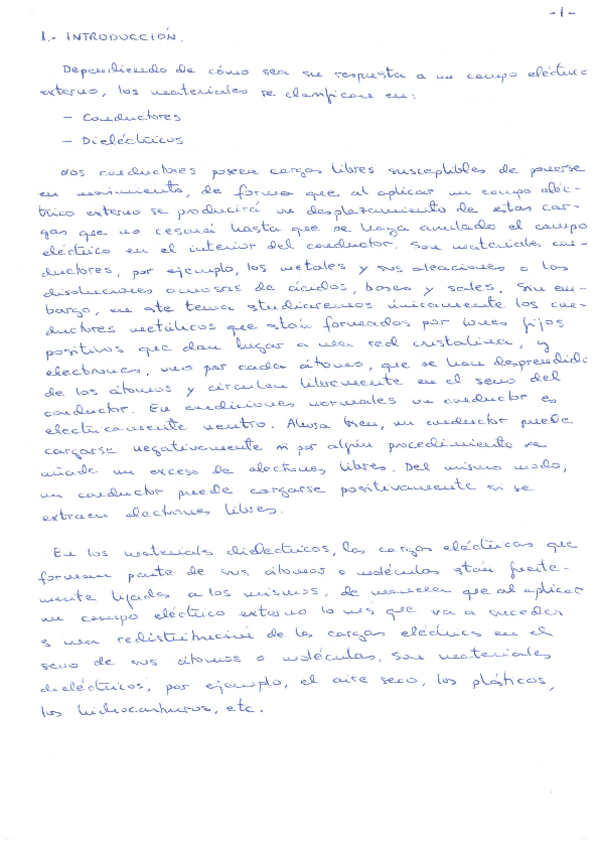 -1-
1.- INTRODUCCIÓN.
Dependiendo de cómo sea su respuesta a un campo eléctrico
externo, los materiales se clasifican en:
- Conductores
- Dieléctricos
Los conductores poseen cargas libres susceptibles de ponerse
en movimiento, de forma que al aplicar un campo eléc-
trico externo se producirá un desplazamiento de estas car-
gas que no cesará hasta que se haya anulado el campo
eléctrico en el interior del conductor. Son materiales con-
ductores, por ejemplo, los metales y sus aleaciones o las
disoluciones acuosas de ácidos, bases y sales. Sin em-
bargo, en este tema estudiaremos únicamente los con-
ductores metálicos que están formados por iones fijos
positivos que dan lugar a una red cristalina, y
electrones, uno por cada átomo, que se han desprendido
de los átomos y circulan libremente en el seno del
conductor. En condiciones normales un conductor es
electricamente neutro. Ahora bien, un conductor puede
cargarse negativamente si por algún procedimiento se
añade un exceso de electrones libres. Del mismo modo,
un conductor puede cargarse positivamente si se
extraen electrones libres.
En los materiales dieléctricos, las cargas eléctricas que
forman parte de sus átomos o moléculas están fuerte-
mente ligadas a los mismos, de manera que al aplicar
un campo eléctrico externo lo más que va a suceder
es una redistribución de las cargas eléctricas en el
seno de sus átomos o moléculas. Son materiales
dieléctricos, por ejemplo, el aire seco, los plásticos,
los hidrocarburos, etc.